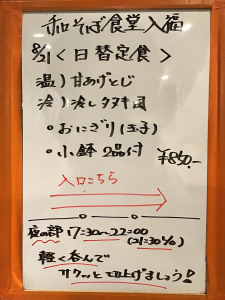 和そば食堂入福
8/21<日替定食>
温)甘あげとじ
冷)冷したぬき
・おにぎり(玉子)
・小鉢2品付 ¥850.-
入口こちら
夜の部17:30〜22:00
(21:30 %)
軽く呑んで
サクッと切上げましょう!